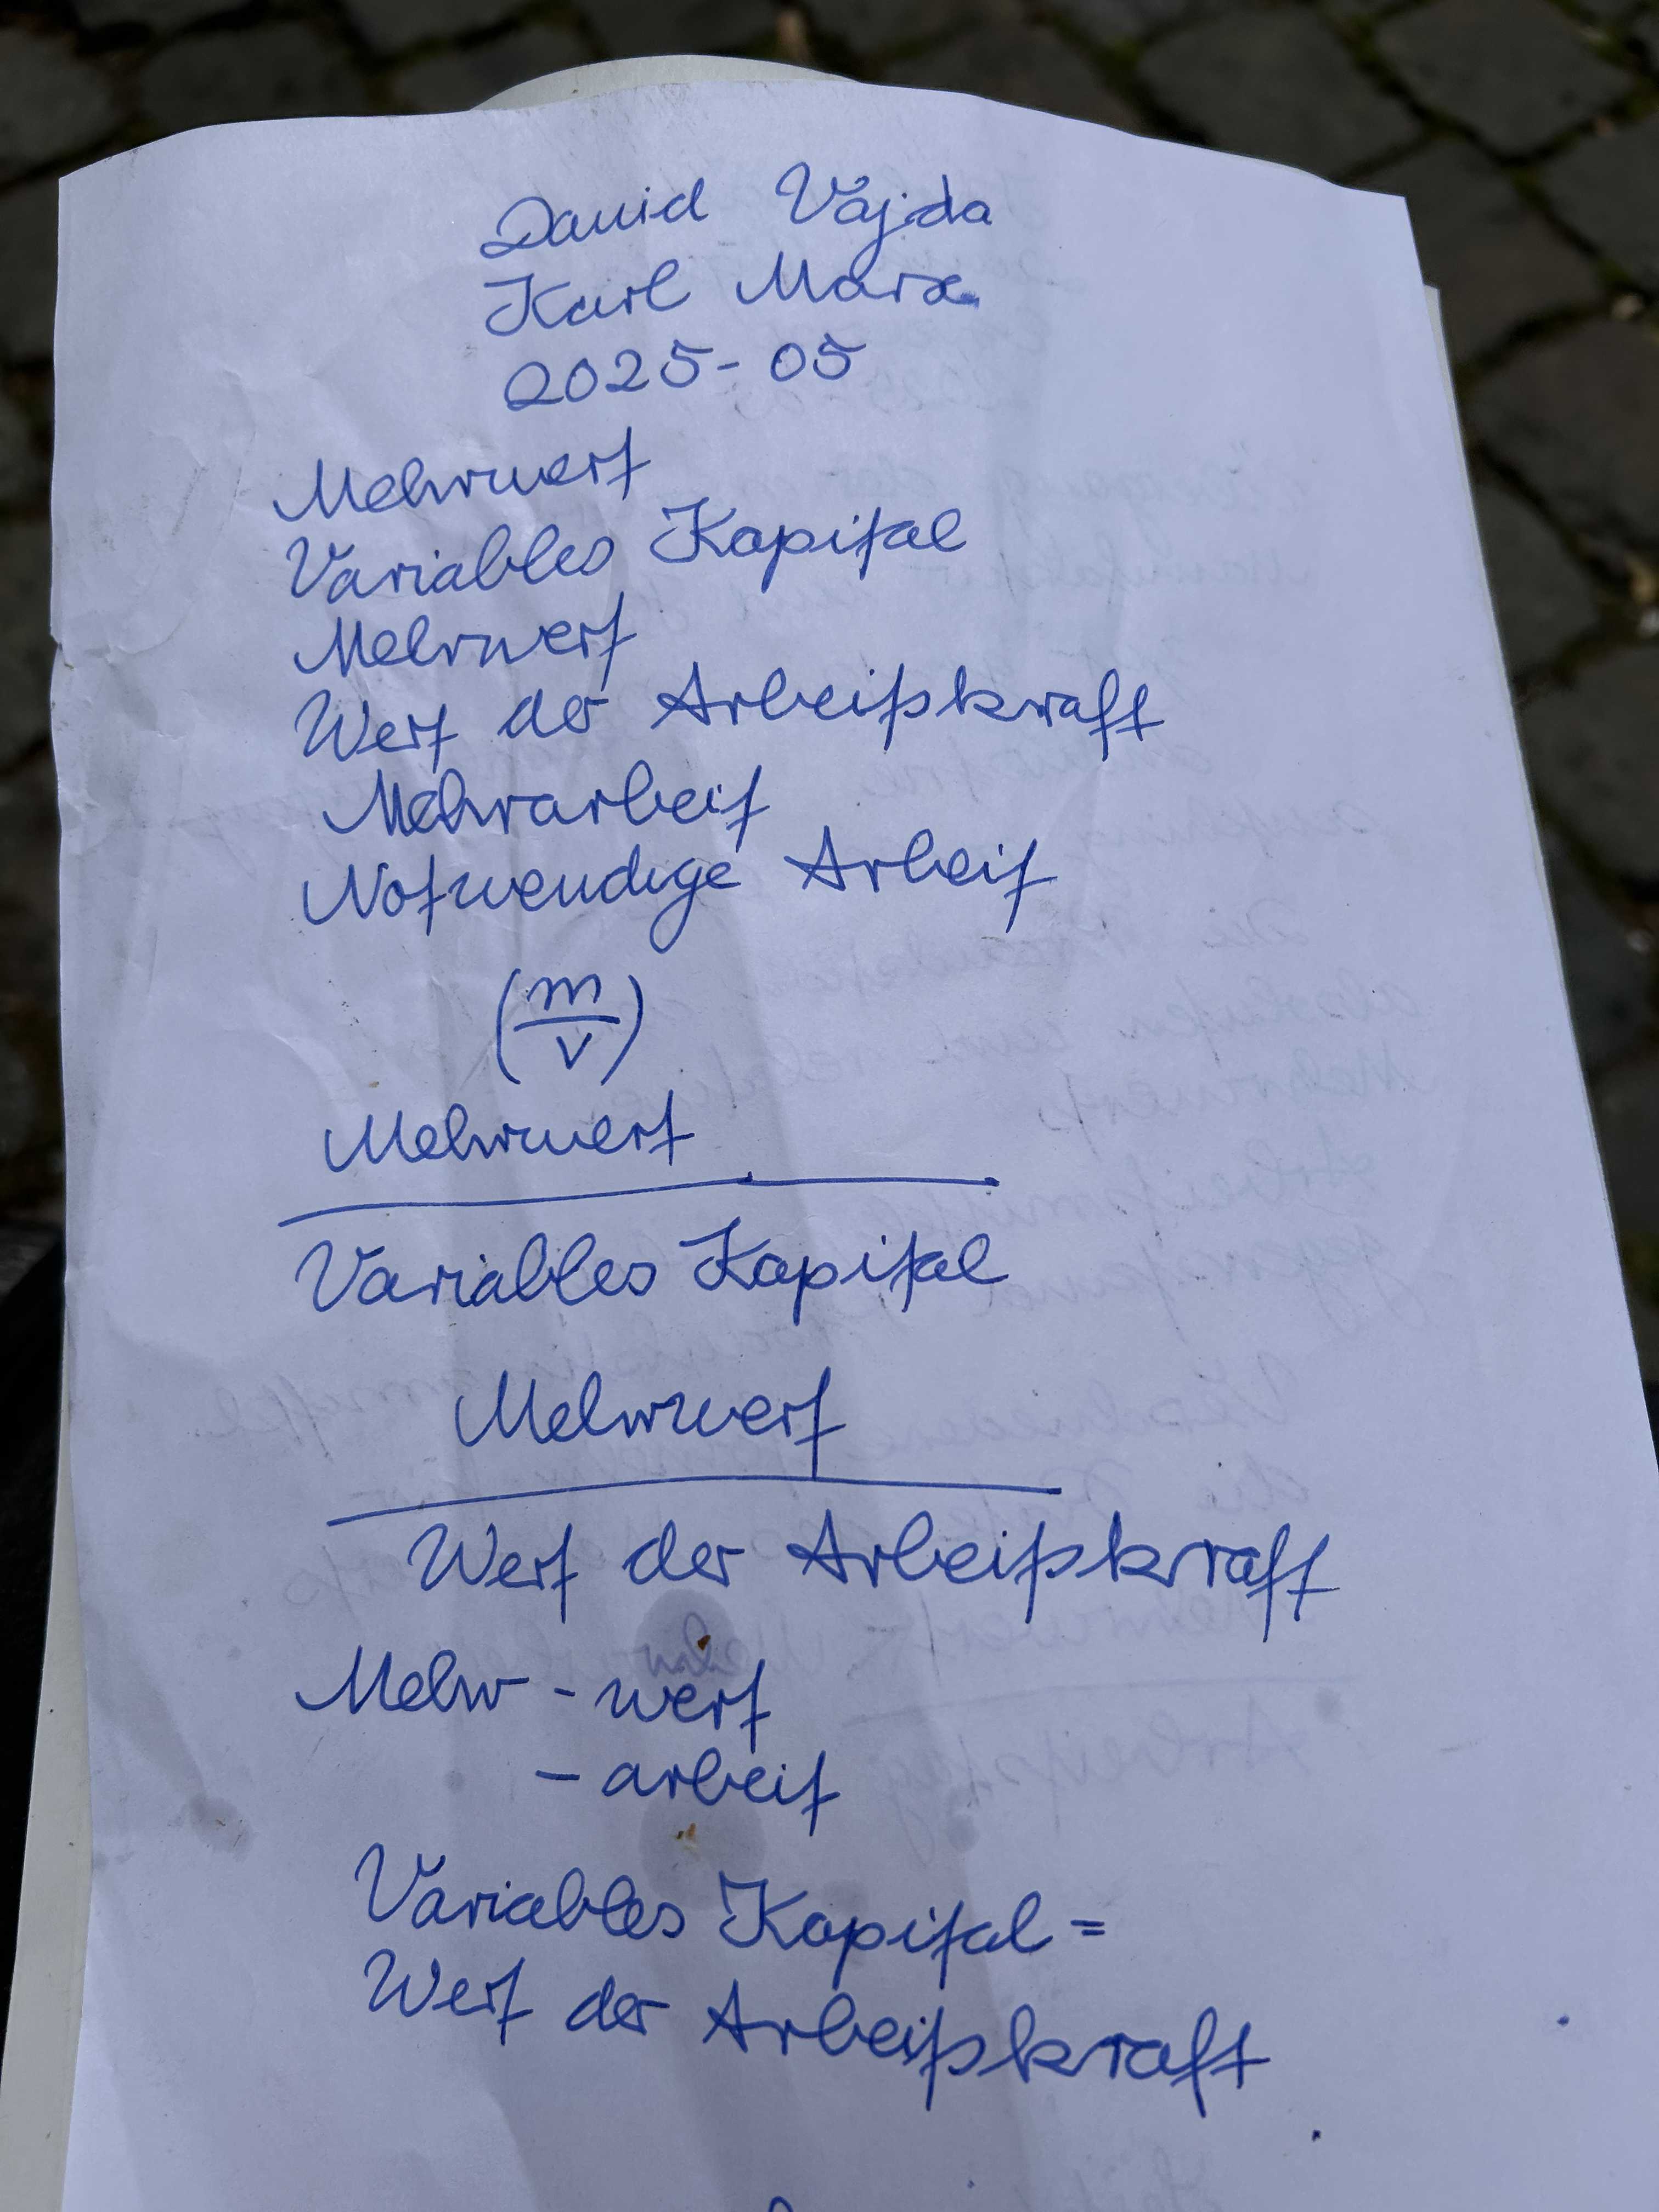 David Vajda
Karl Marx
2025-05
Mehrwert
Variables Kapital
Mehrwert
Wert der Arbeitskraft
Mehrarbeit
Notwendige Arbeit
(m
v)
Mehrwert
Variables Kapital
Mehrwert
Wert der Arbeitskraft
Mehr - wert
- arbeit
Variables Kapital =
Wert der Arbeitskraft